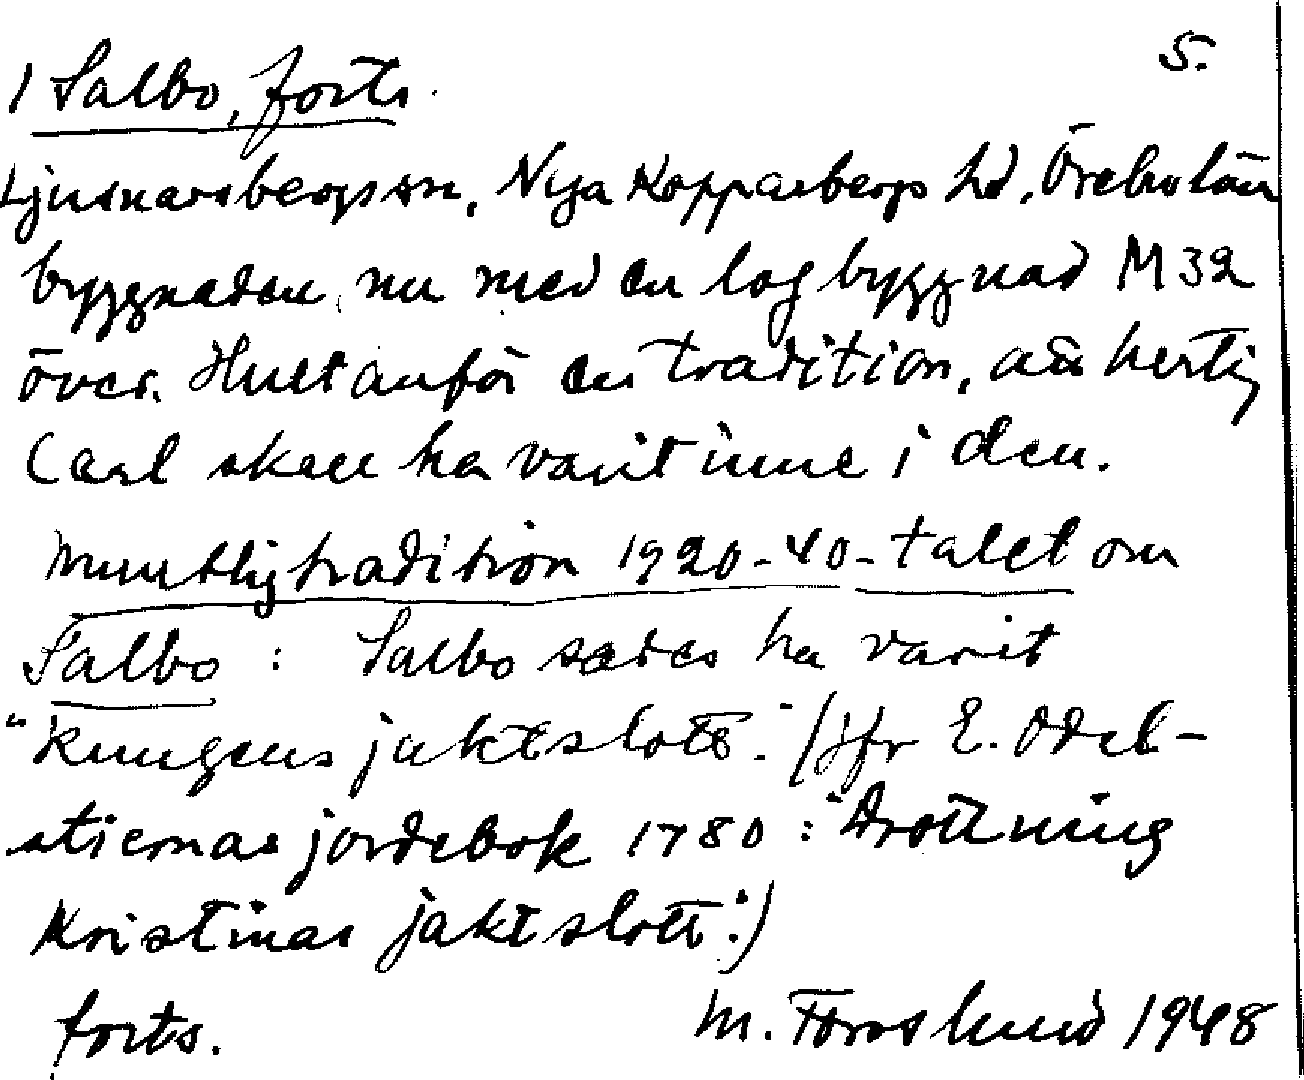 5.
1 Salbo, forts.
Ljusnarsbergs sn, Nya Kopparbergs hd, Örebro län
byggnaden, nu med en log byggnad M 32
över. Hult anför en tradition, att hertig
Carl skall ha varit inne i den.
Muntlig tradition 1920-40-talet om
Salbo : Salbo sades ha varit
"kungens jaktslott." (jfr E. Odel-
stiernas jordebok 1780 : "Drottning
Kristinas jaktslott".)
forts. M. Forslund 1948